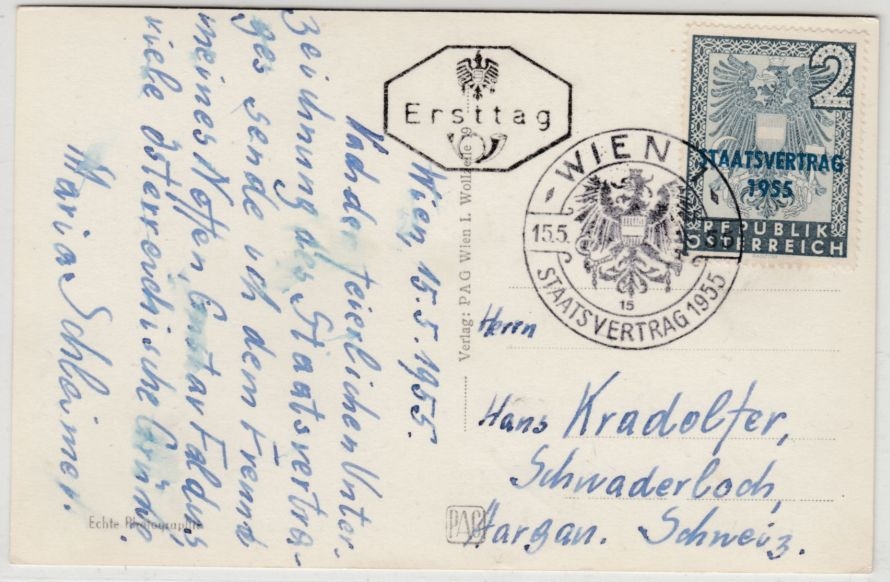 Wien, 15.5.1955.
Nach der feierlichen Unter-
zeichnung des Staatsvertra-
ges sende ich dem Freund
meines Neffen, Gustav
viele österreichische Grüße
Maria
Echte Photographie
Verlag: PAG Wien I. Wollzeile 19
PAG
Ersttag
WIEN 1
15.5.
15
STAATSVERTRAG 1955
2
STAATSVERTRAG
1955
REPUBLIK
ÖSTERREICH
Herrn
Hans Kradolfer,
Schwaderloch,
Aargau. Schweiz.